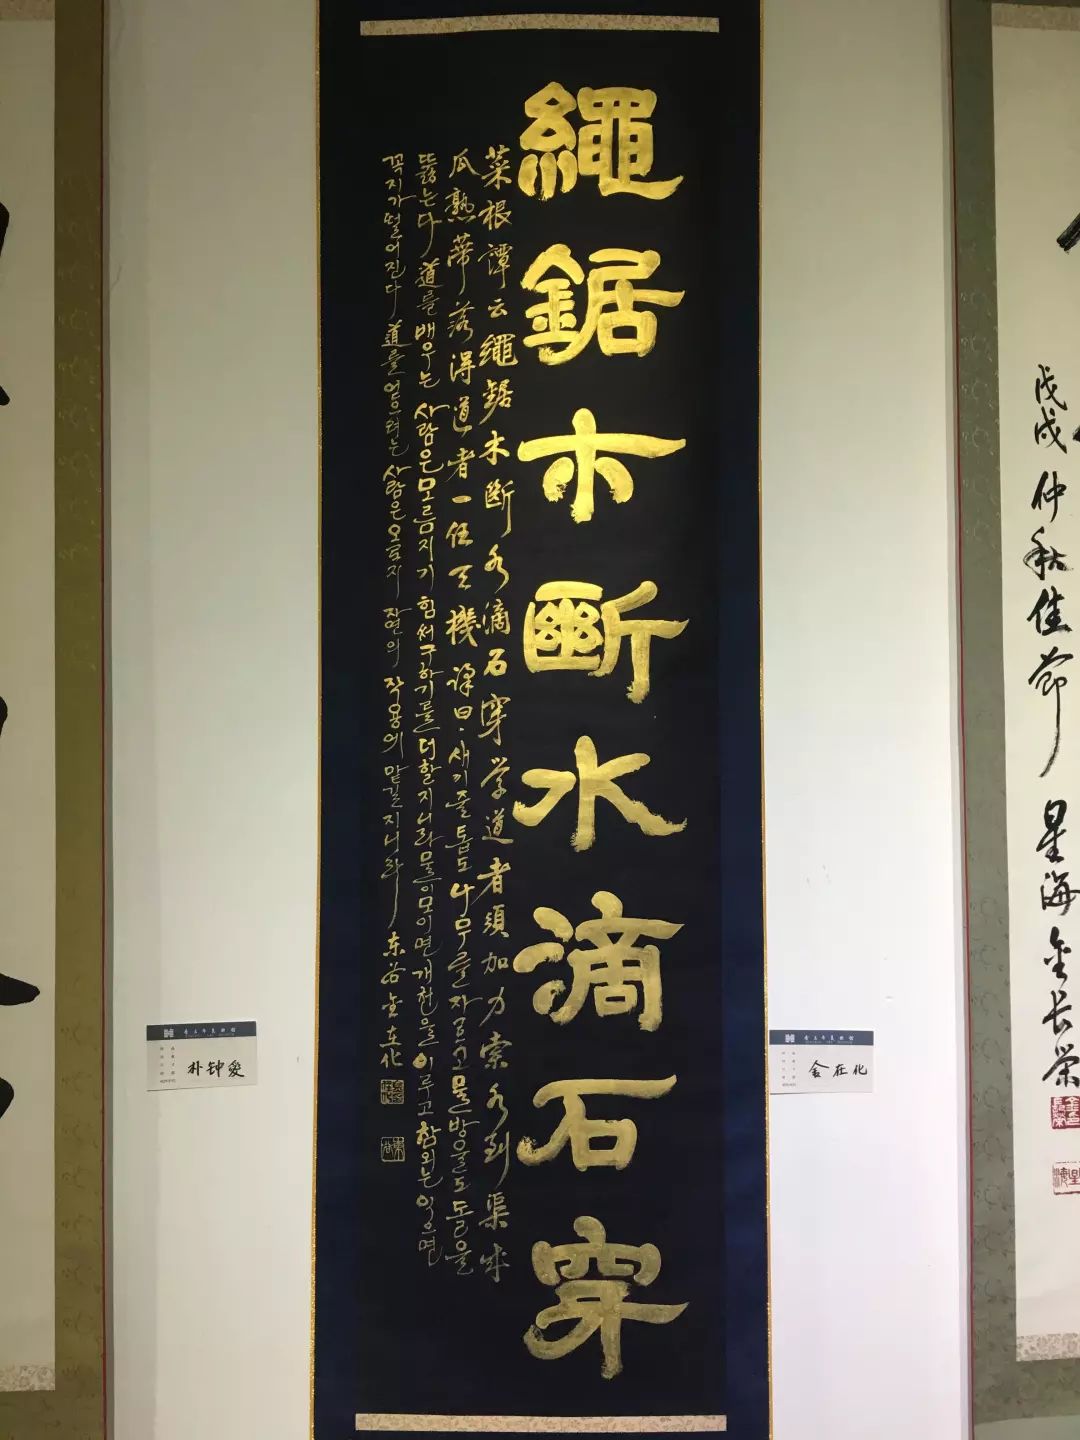 繩鋸木斷水滴石穿
菜根譚云繩鋸木斷水滴石穿学道者須加力索水到渠成
瓜熟蒂落得道者一任天機译曰·새끼줄톱도나무를자르고물방울도돌을
뚫는다 道를 배우는 사람은모름지기 힘써구하기를 더할지니라물이모이면개천을이루고 참외는익으면
꼭지가떨어진다 道를얻으려는 사람은오로지 자연의 작용에 맡길지니라 東谷金在化
朴钟爱
金在化
戊戌仲秋佳節 星海金长榮